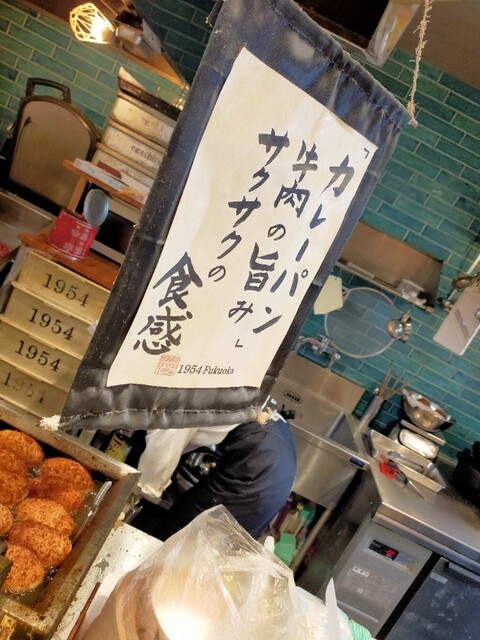 「カレーパン
牛肉の旨み」
サクサクの
食感
1954 Fukuoka
1954
1954
1954
1954